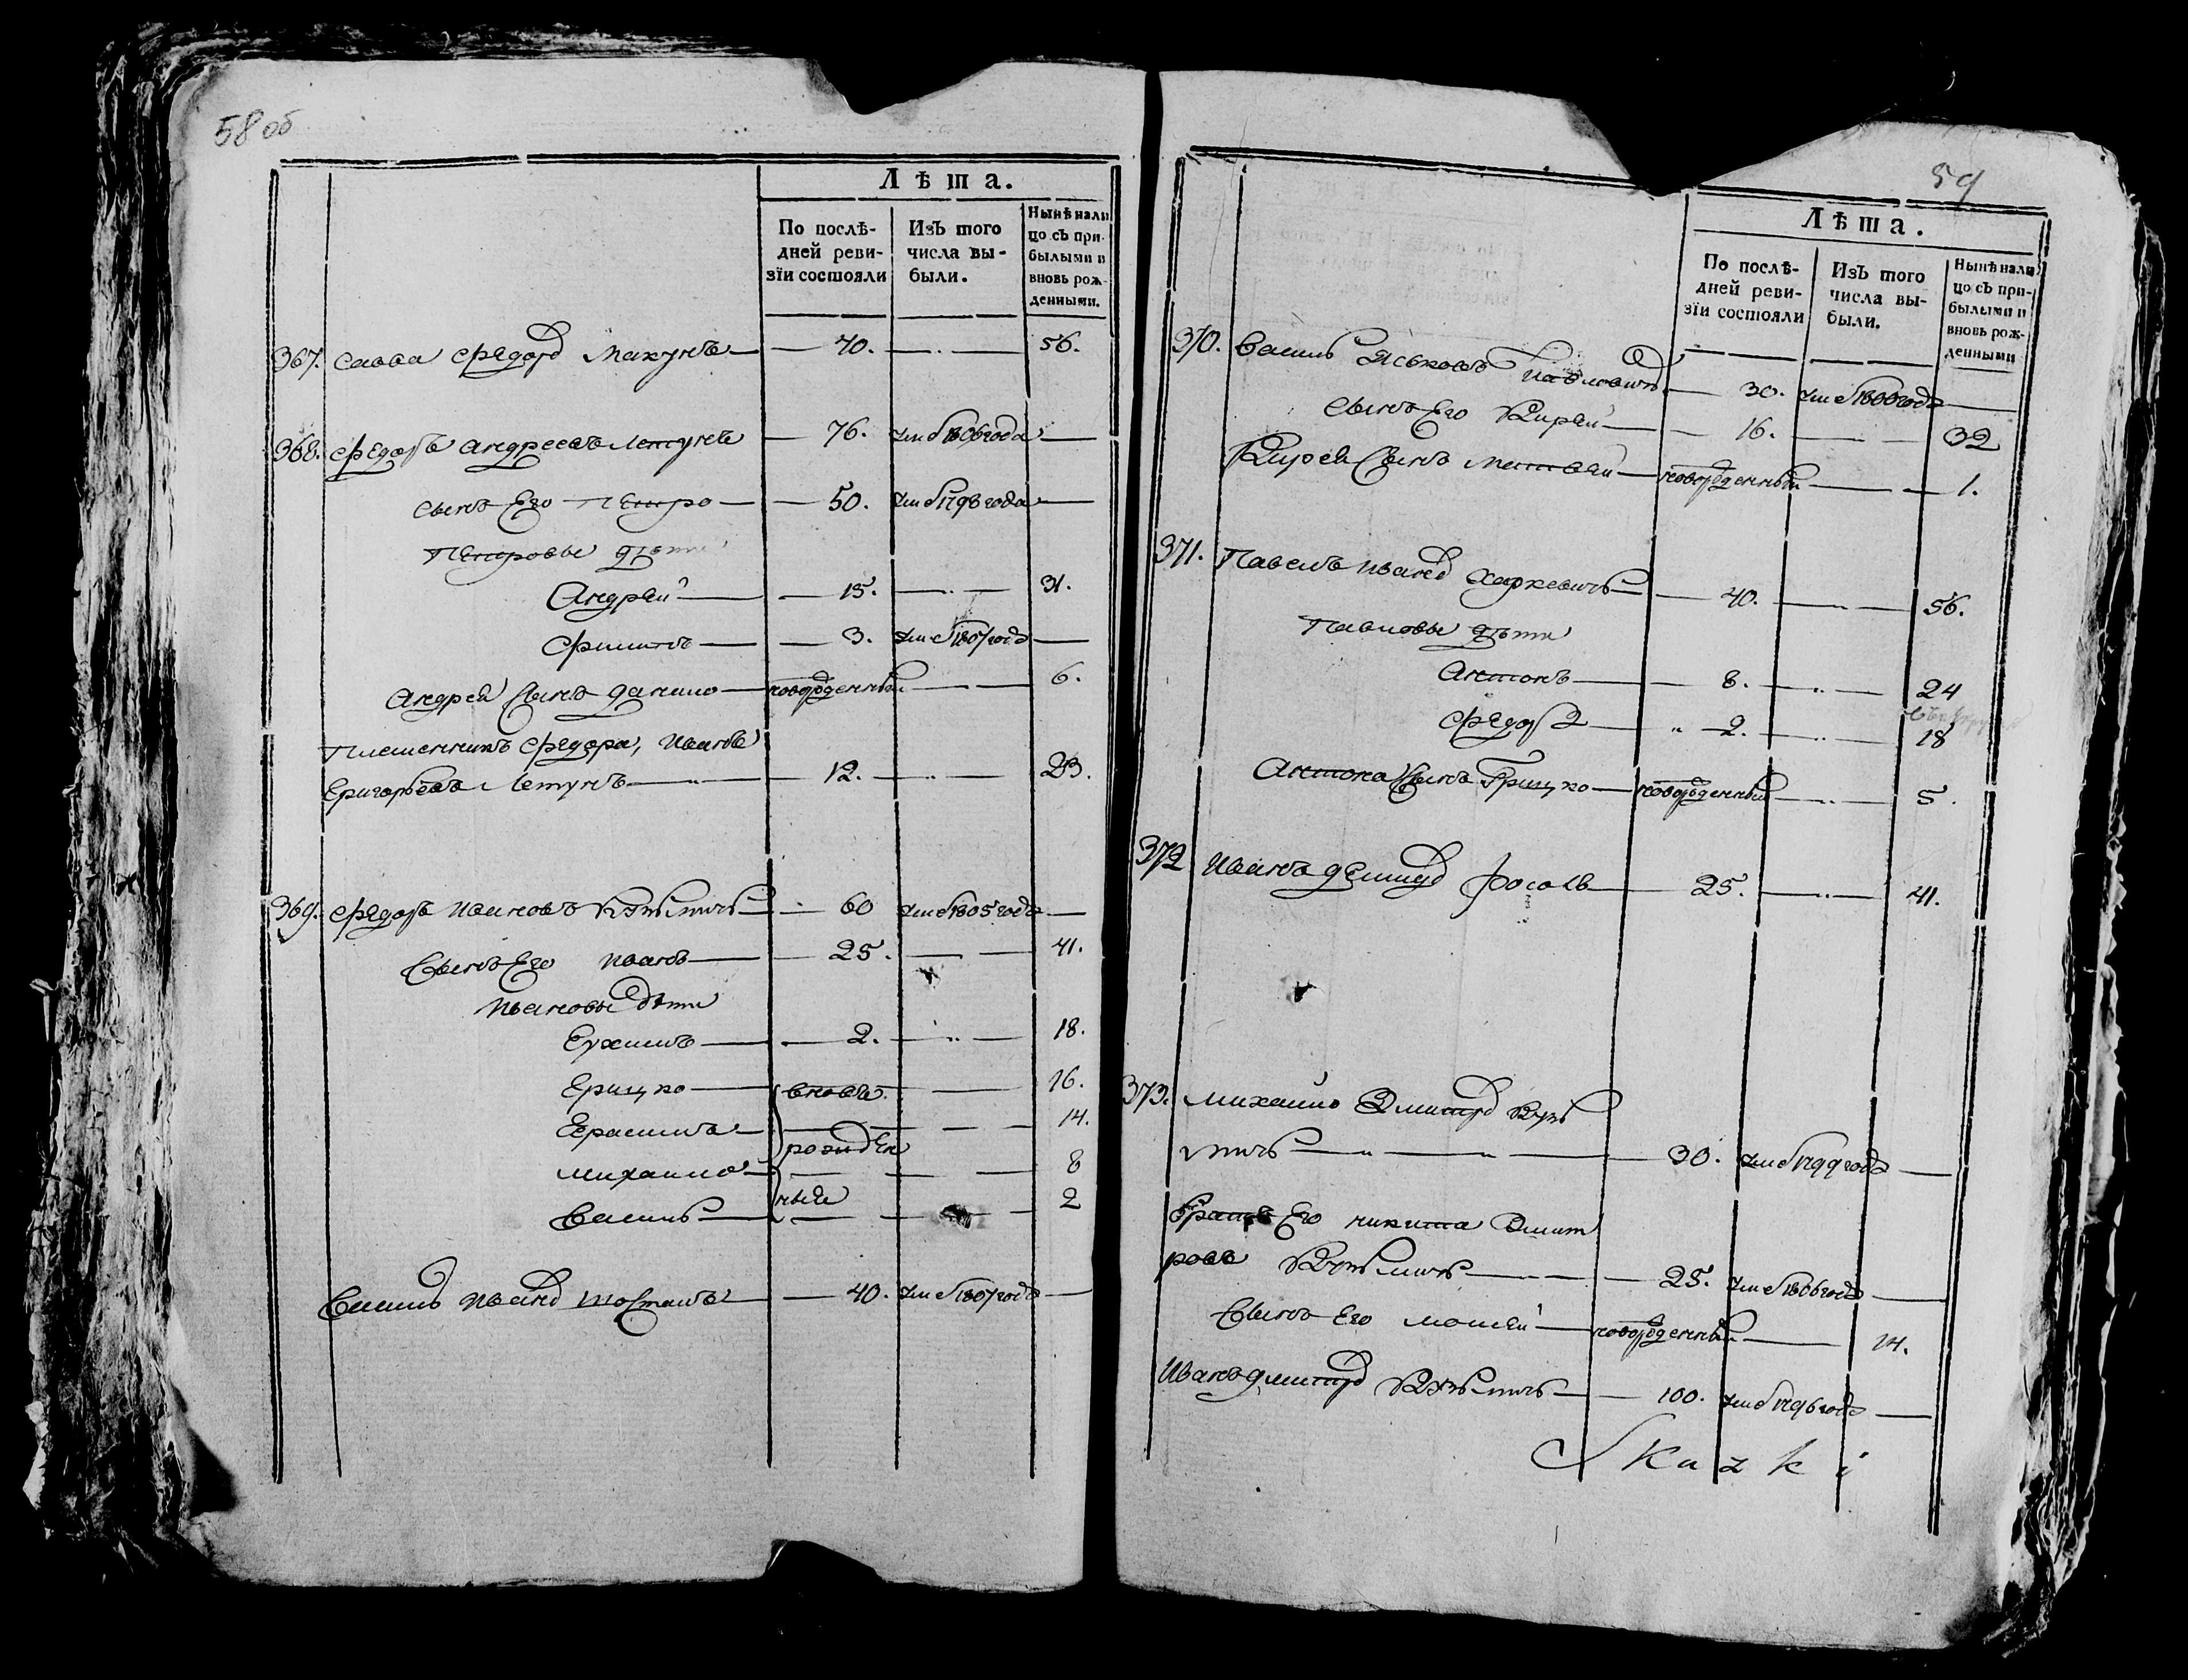 58 об
Лѣта.
По послѣдней ревизїи состояли
Изъ того числа выбыли.
Нынѣ налицо съ прибылыми и вновь рожденными.
367. Савва Федоров Макунъ — 70. — 56.
368. Федоръ Андреевъ Летунъ — 76. ум. 1806 года —
Сынъ Его Петро — 50. ум. 1798 года —
Петровы дѣти
Андрей — 15. — 31.
Филипъ — 3. ум. 1807 года —
Андрея Сынъ Данило — новорожденный — 6.
Племенникъ Федора, Иванъ
Григорьевъ Летунъ — 12. — 23.
369. Федоръ Ивановъ — 60 ум. 1805 года —
Сынъ Его Иванъ — 25. — 41.
Ивановы дѣти
Ерхимъ — 2. — 18.
Грицко — вновь — 16.
Герасимъ — 14.
рожден
Михайло — 8
ные
Василь — 2
Василь Иванов — 40. ум. 1807 года —
59
Лѣта.
По послѣдней ревизїи состояли
Изъ того числа выбыли.
Нынѣ налицо съ прибылыми и вновь рожденными
370. Василь Яськовъ — 30. ум. 1806 года —
Сынъ Его Кирей — 16. — 32
Кирея Сынъ Матвей — новорожденный — 1.
371. Павелъ Иванов Харкевичъ — 40. — 56.
Павловы дѣти
Антонъ — 8. — 24
Федоръ — 2. — 18
Антона Сынъ Грицко — новорожденный — 5.
372 Иванъ Демидов Росолъ — 25. — 41.
373. Михайло Дмитров Кузь
мичъ — 30. ум. 1799 года —
Братъ Его Никита Дмит
ровъ Кузьмичъ — 25. ум. 1806 года —
Сынъ Его Мошей — новорожденный — 14.
Иванъ Дмитров Кузьмичъ — 100. ум. 1796 года —
Skazki